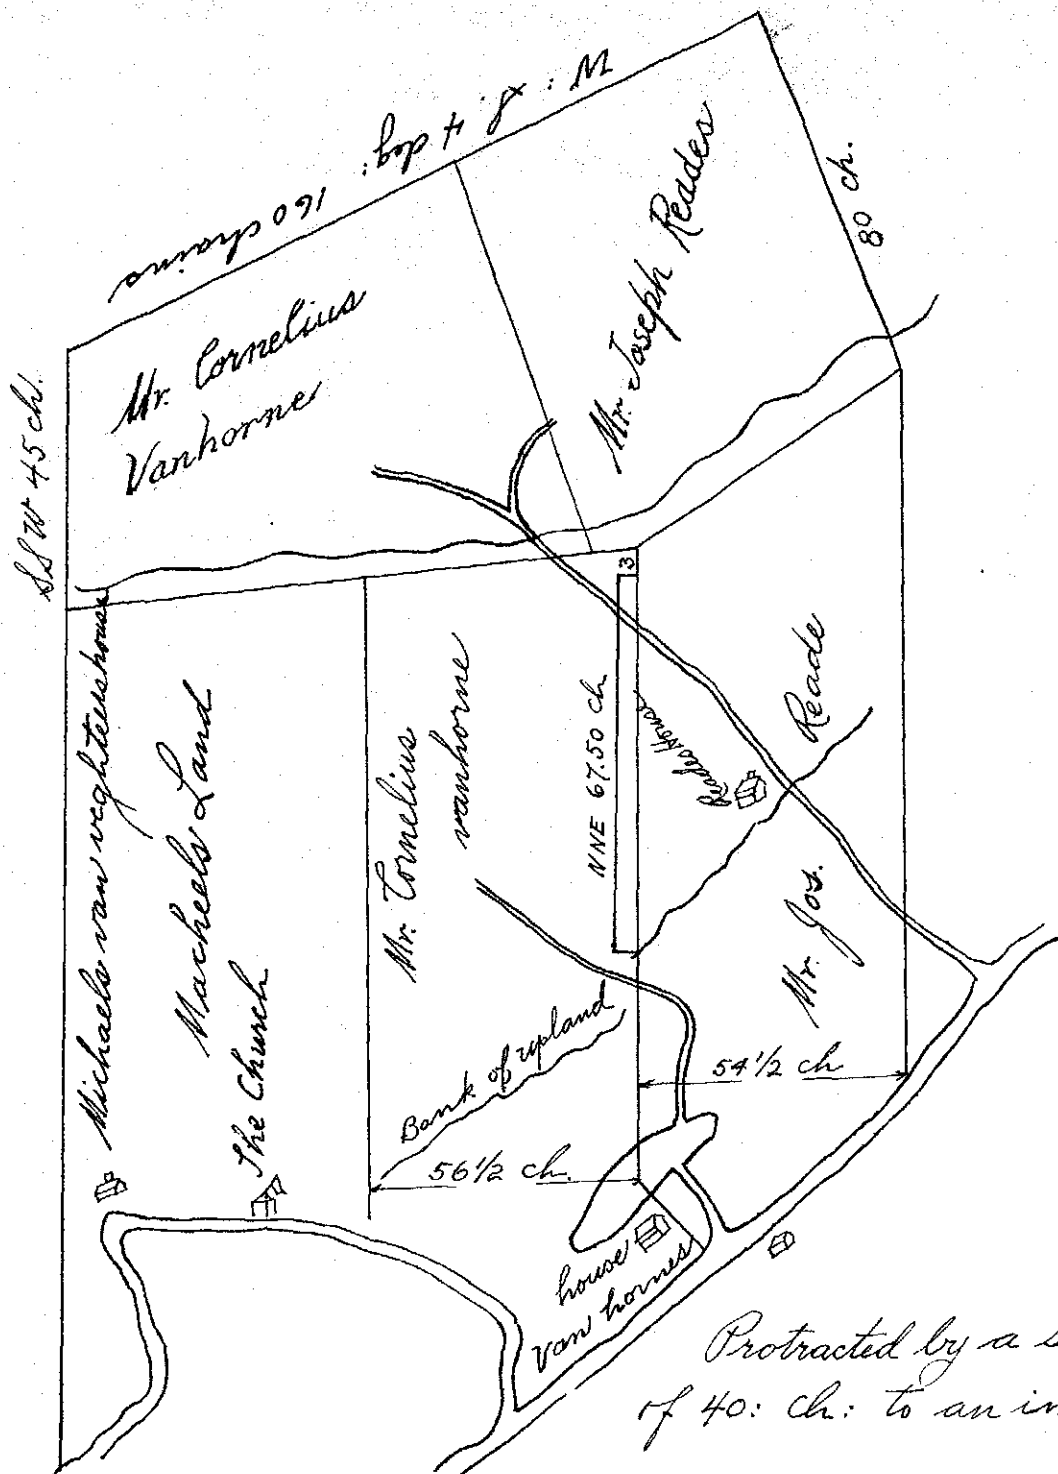 W: S. 4 deg: 160 chains
SSW 45 ch.
80 ch.
Mr. Cornelius
Vanhorne
Mr. Joseph Reades
Michaels van veghteens house
Macheels Land
The Church
Mr. Cornelius
vanhorne
NNE 67.50 ch
3
Reades House
Mr. Jos. Reade
Bank of upland
56 1/2 ch.
54 1/2 ch
house
Van hornes
Protracted by a
of 40: Ch: to an